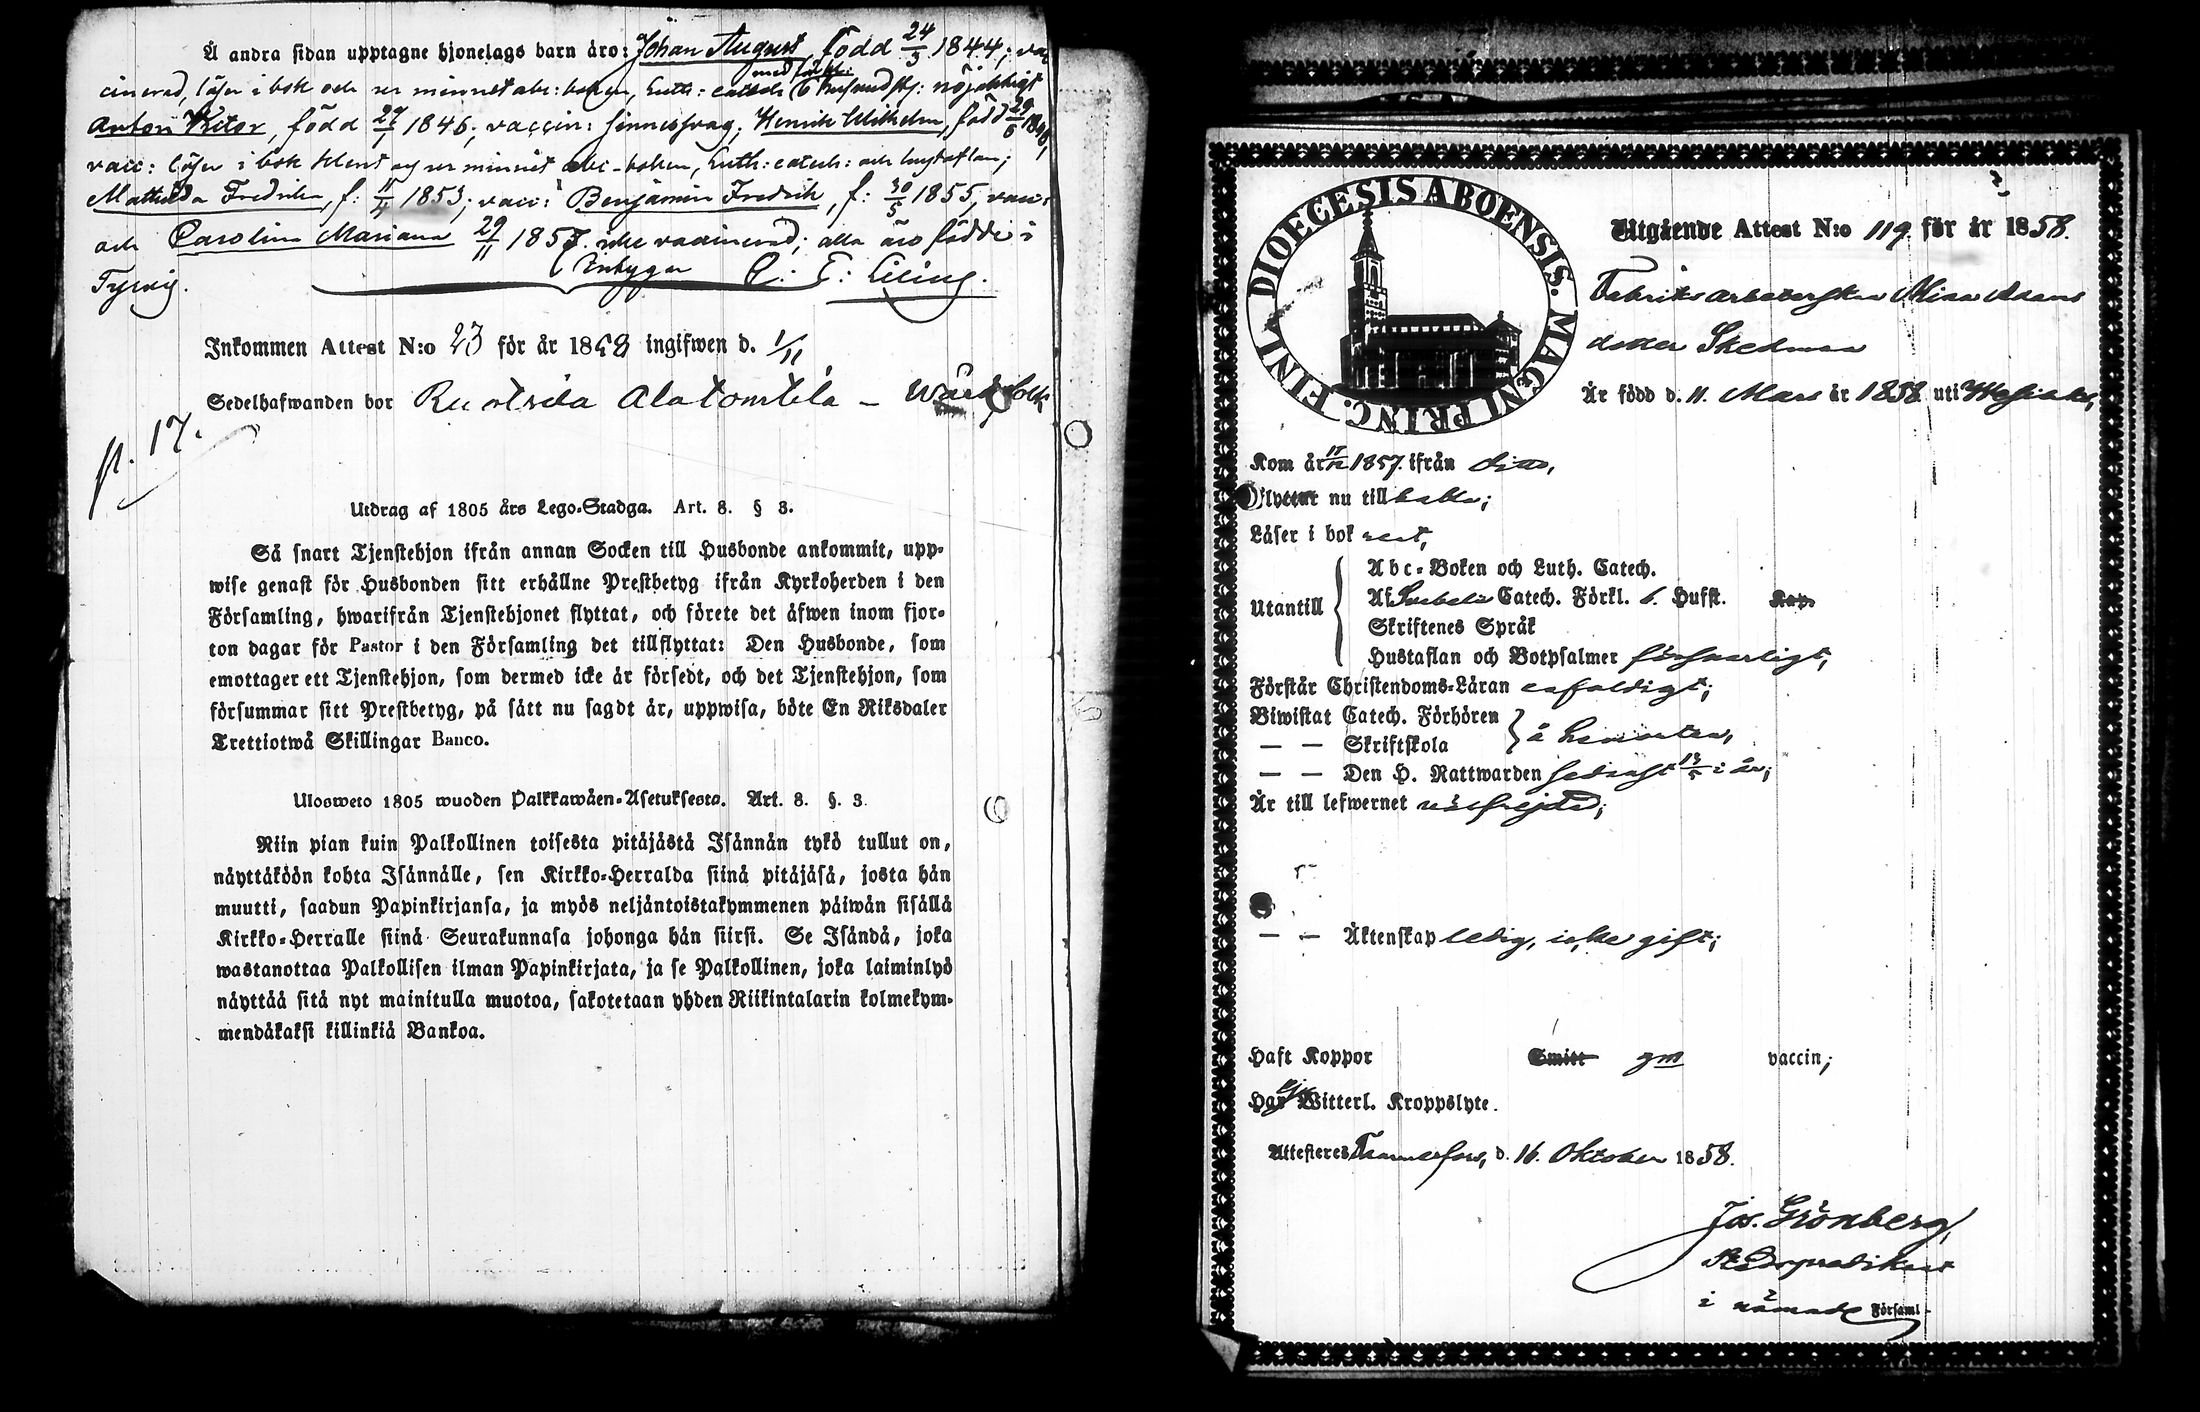 Å andra sidan upptagne hjonelags barn äro: Johan August, född 24/3 1844; vac
cinerad, läser i bok och ur minnet abc: boken, Luth: catech: nöjaktigt
med förkl:
Anton Victor, född 27/1 1846; vaccin: sinnessvag; Henrik Wilhelm, född 29/6 1848,
vacc: läser i bok klent och ur minnet abc-boken, Luth: catech: och hustaflan;
Mathilda Fredrika, f: 11/4 1853; vacc: Benjamin Fredrik, f: 30/5 1855, vacc:
och Carolina Mariana 29/11 1857. icke vaccinerad; alla äro födde i
Tyrvis. Intygar
Inkommen Attest N:o 23 för år 1858 ingifwen d. 1/11
Sedelhafwanden bor Ruotsila Alatomtila –
p. 17.
Utdrag af 1805 års Lego-Stadga. Art. 8. § 3.
Så snart Tjenstehjon ifrån annan Socken till Husbonde ankommit, upp-
wise genast för Husbonden sitt erhållne Prestbetyg ifrån Kyrkoherden i den
Församling, hwarifrån Tjenstehjonet flyttat, och förete det äfwen inom fjor-
ton dagar för Pastor i den Församling det tillflyttat: Den Husbonde, som
emottager ett Tjenstehjon, som dermed icke är försedt, och det Tjenstehjon, som
försummar sitt Prestbetyg, på sätt nu sagdt är, uppwisa, böte En Riksdaler
Trettiotwå Skillingar Banco.
Ulosweto 1805 wuoden Palkkawäen-Asetuksesta. Art. 8. §. 3.
Niin pian kuin Palkollinen toisesta pitäjästä Isännän tykö tullut on,
näyttäköön kohta Isännälle, sen Kirkko-Herralda siinä pitäjäsä, josta hän
muutti, saadun Papinkirjansa, ja myös neljäntoistakymmenen päiwän sisällä
Kirkko-Herralle siinä Seurakunnasa johonga hän siirsi. Se Isändä, joka
wastanottaa Palkollisen ilman Papinkirjata, ja se Palkollinen, joka laiminlyö
näyttää sitä nyt mainitulla muotoa, sakotetaan yhden Riikintalarin kolmekym-
mendäkaksi killinkiä Bankoa.
DIOECESIS ABOENSIS. MAGNI PRINC. FINL.
Utgående Attest N:o 119 för år 1858.
Fabriks arbeterskan Mina Adams
dotter Skedman
Är född d. 11. Mars år 1838 uti
Kom år 11/12 1857. ifrån ditto,
Flyttar nu till
Läser i bok rent,
Utantill
Abc-Boken och Luth. Catech.
Af Svebelii Catech. Förkl. o. Husst. Kap.
Skriftenes Språk
Hustaflan och Botpsalmer försvarligt,
Förstår Christendoms-Läran enfaldigt;
Biwistat Catech. Förhören
— — Skriftskola
å hemorten,
— — Den H. Nattwarden sednast 13/5 i år;
Är till lefwernet väl frejdad;
— — Äktenskap ledig, icke gift;
Haft Koppor Smitt gm vaccin;
Har ej Witterl. Kroppslyte.
Attesteres Tammerfors, d. 16. Oktober 1858.
Jos. Grönberg,
i nämnde Församl-